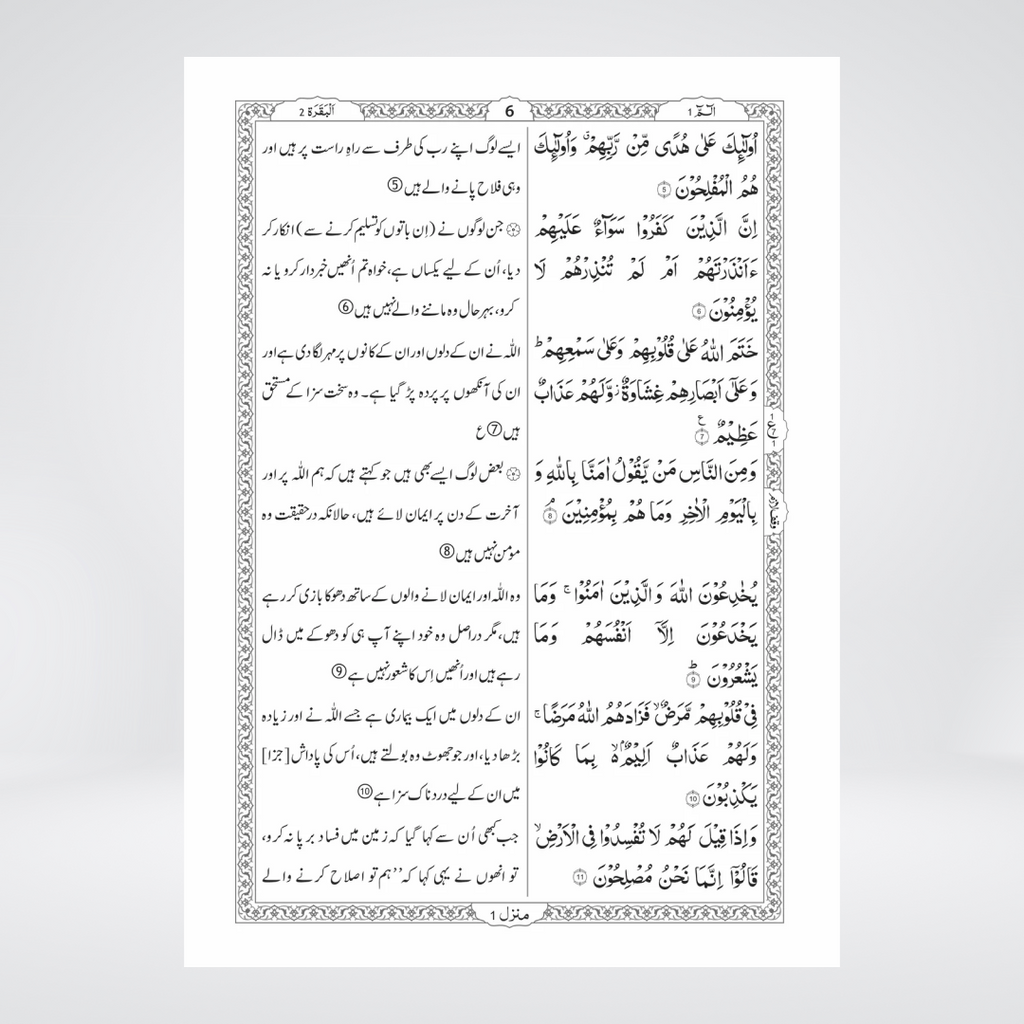 الٓمّٓ 1
6
اَلْبَقَرَة 2
اُولٰٓئِكَ عَلٰی هُدًی مِّنْ رَّبِّهِمْ ۗ وَاُولٰٓئِكَ
هُمُ الْمُفْلِحُوْنَ ۝5
اِنَّ الَّذِیْنَ كَفَرُوْا سَوَآءٌ عَلَیْهِمْ
ءَاَنْذَرْتَهُمْ اَمْ لَمْ تُنْذِرْهُمْ لَا
یُؤْمِنُوْنَ ۝6
خَتَمَ اللّٰهُ عَلٰی قُلُوْبِهِمْ وَعَلٰی سَمْعِهِمْ ؕ
وَعَلٰۤی اَبْصَارِهِمْ غِشَاوَةٌ ؗ وَّلَهُمْ عَذَابٌ
عَظِیْمٌ ۝7 ع
وَمِنَ النَّاسِ مَنْ یَّقُوْلُ اٰمَنَّا بِاللّٰهِ وَ
بِالْیَوْمِ الْاٰخِرِ وَمَا هُمْ بِمُؤْمِنِیْنَ ۘ ۝8
یُخٰدِعُوْنَ اللّٰهَ وَالَّذِیْنَ اٰمَنُوْا ۚ وَمَا
یَخْدَعُوْنَ اِلَّاۤ اَنْفُسَهُمْ وَمَا
یَشْعُرُوْنَ ؕ ۝9
فِیْ قُلُوْبِهِمْ مَّرَضٌ ۙ فَزَادَهُمُ اللّٰهُ مَرَضًا ۚ
وَلَهُمْ عَذَابٌ اَلِیْمٌۢ ۙ۬ بِمَا كَانُوْا
یَكْذِبُوْنَ ۝10
وَاِذَا قِیْلَ لَهُمْ لَا تُفْسِدُوْا فِی الْاَرْضِ ۙ
قَالُوْۤا اِنَّمَا نَحْنُ مُصْلِحُوْنَ ۝11
ایسے لوگ اپنے رب کی طرف سے راہِ راست پر ہیں اور
وہی فلاح پانے والے ہیں ⑤
۞ جن لوگوں نے (اِن باتوں کو تسلیم کرنے سے) انکار کر
دیا، اُن کے لیے یکساں ہے، خواہ تم اُنھیں خبردار کرو یا نہ
کرو، بہرحال وہ ماننے والے نہیں ہیں ⑥
اللہ نے ان کے دلوں اور ان کے کانوں پر مہر لگا دی ہے اور
ان کی آنکھوں پر پردہ پڑ گیا ہے۔ وہ سخت سزا کے مستحق
ہیں ⑦ ع
۞ بعض لوگ ایسے بھی ہیں جو کہتے ہیں کہ ہم اللہ پر اور
آخرت کے دن پر ایمان لائے ہیں، حالانکہ درحقیقت وہ
مومن نہیں ہیں ⑧
وہ اللہ اور ایمان لانے والوں کے ساتھ دھوکا بازی کر رہے
ہیں، مگر دراصل وہ خود اپنے آپ ہی کو دھوکے میں ڈال
رہے ہیں اور اُنھیں اِس کا شعور نہیں ہے ⑨
ان کے دلوں میں ایک بیماری ہے جسے اللہ نے اور زیادہ
بڑھا دیا، اور جو جھوٹ وہ بولتے ہیں، اُس کی پاداش [جزا]
میں ان کے لیے دردناک سزا ہے ⑩
جب کبھی اُن سے کہا گیا کہ زمین میں فساد برپا نہ کرو،
تو انھوں نے یہی کہا کہ ’’ہم تو اصلاح کرنے والے
1 ع 7 1
منزل 1